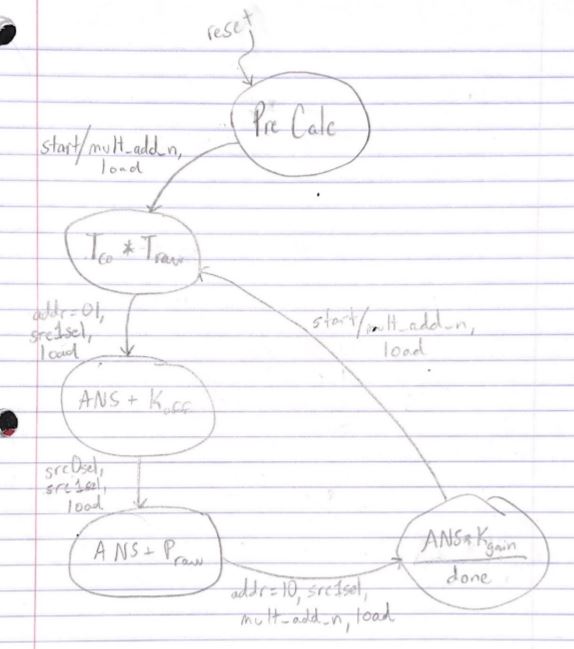 reset
Pre Calc
start/mult_add_n,
load
Tco * Traw
addr=01,
src1sel,
load
start/mult_add_n,
load
ANS + Koff
src0sel,
src1sel,
load
ANS + Praw
addr=10, src1sel,
mult_add_n, load
ANS*Kgain
done